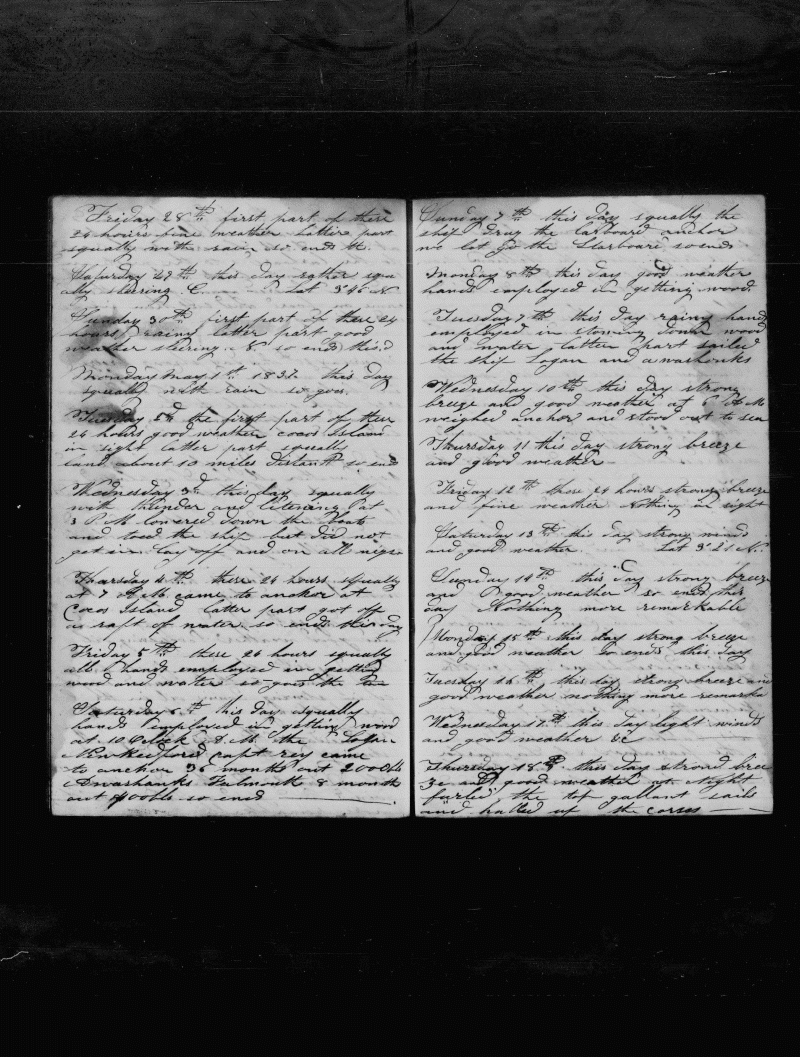 Friday 28th first part of these
24 hours fine weather latter part
squally with rain so ends th.
Saturday 29th this day rather squa
ally steering E. Lat 3°46 N
Sunday 30th first part of these 24
hours rainy latter part good
weather steering E. so ends this d
Monday May 1st 1837 this day
squally with rain so goes
Tuesday the first part of these
24 hours good weather cocos Island
in sight latter part squally
land about 10 miles distant so ends
Wednesday 3d this day squally
with thunder and litening at
3 P.M. lowered down the boats
and toed the ship but did not
get in. Lay off and on all nigee
Thursday 4th these 24 hours squally
at 7 A.M. came to anchor at
Cocos Island latter part got off
a raft of water so ends this day
Friday 5th these 24 hours squally
all hands employed in getting
wood and water so goes the
Saturday 6th this day squally
hands employed in getting wood
at 10 Oclock A.M. the Logan
Newbedford capt rey came
to anchor 36 months out 2000bls
Awashanks Falmouth 8 month
out 400bls so ends
Sunday 7th this day squally the
ship drug the larboard anchor
we let go the Starboard so ends
Monday 8th this day good weather
hands employed in getting wood
Tuesday this day rainy hand
employed in stowing down wood
and water latter part sailed
the ship Logan and awashonks
Wednesday 10th this day strong
breeze and good weather at 6 A.M.
weighed anchor and stood out to sea
Thursday 11 this day strong breeze
and good weather
Friday 12th these 24 hours strong breeze
and fine weather Nothing in sight
Saturday 13th this day strong winds
and good weather. Lat 3°21 N.
Sunday 14th this day strong breeze
and good weather so ends this
day Nothing more remarkable
Monday 15th this day strong breeze
and good weather So ends this day
Tuesday 16th this day strong breeze and
good weather nothing more remarka
Wednesday 17th this day light winds
and good weather &c
Thursday 18th this day strong bree
ze and good weather at night
furled the top gallant sails
and halled up the corses